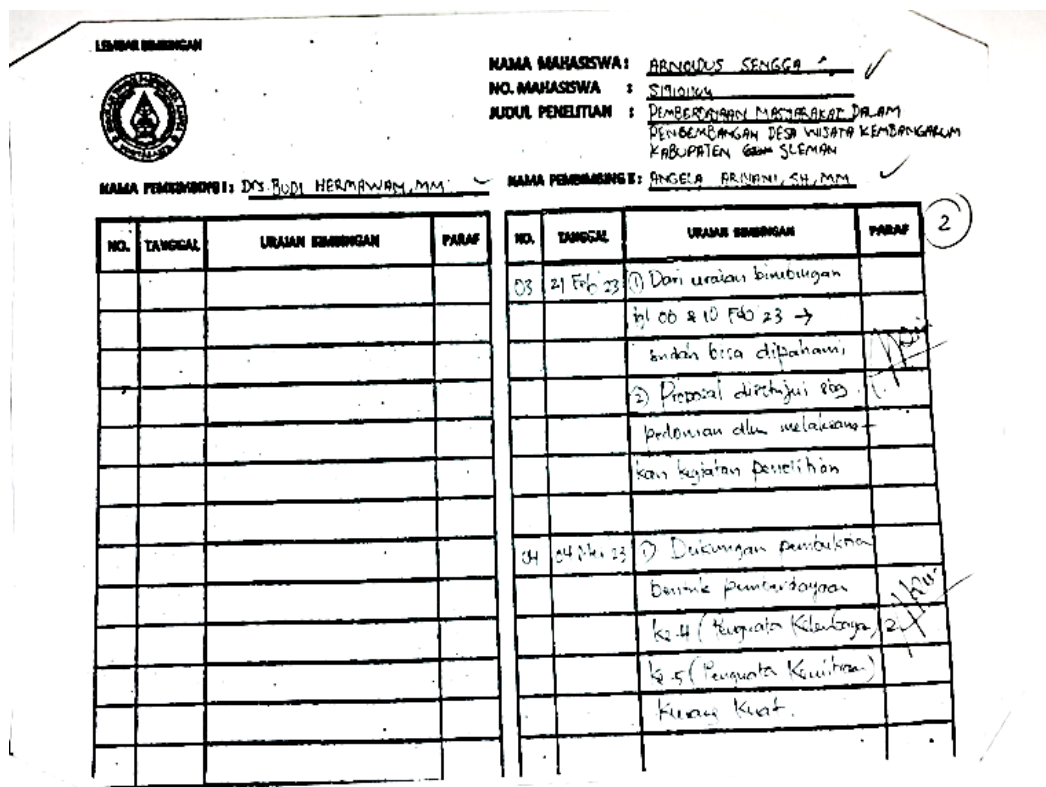 LEMBAR BIMBINGAN
NAMA MAHASISWA : ARNOLDUS SENGGA
NO. MAHASISWA :
JUDUL PENELITIAN : PEMBERDAYAAN MASYARAKAT DALAM
PENGEMBANGAN DESA WISATA KEMBANGARUM
KABUPATEN SLEMAN
NAMA PEMBIMBING I : Drs. BUDI HERMAWAN, MM
NAMA PEMBIMBING II : ANGELA ARIYANI, SH, MM
2
NO. TANGGAL URAIAN BIMBINGAN PARAF
NO. TANGGAL URAIAN BIMBINGAN PARAF
03 21 Feb 23 ① Dari uraian bimbingan
tgl 06 & 10 Feb 23 →
sudah bisa dipahami,
② Proposal disetujui sbg
pedoman dlm melaksana-
kan kegiatan penelitian
04 04 23 ① Dukungan pembuktian
bentuk pemberdayaan
ke-4 (Penguata Kelembaga) 2
ke-5 (Penguata Kemitraa)
Kurang Kuat.